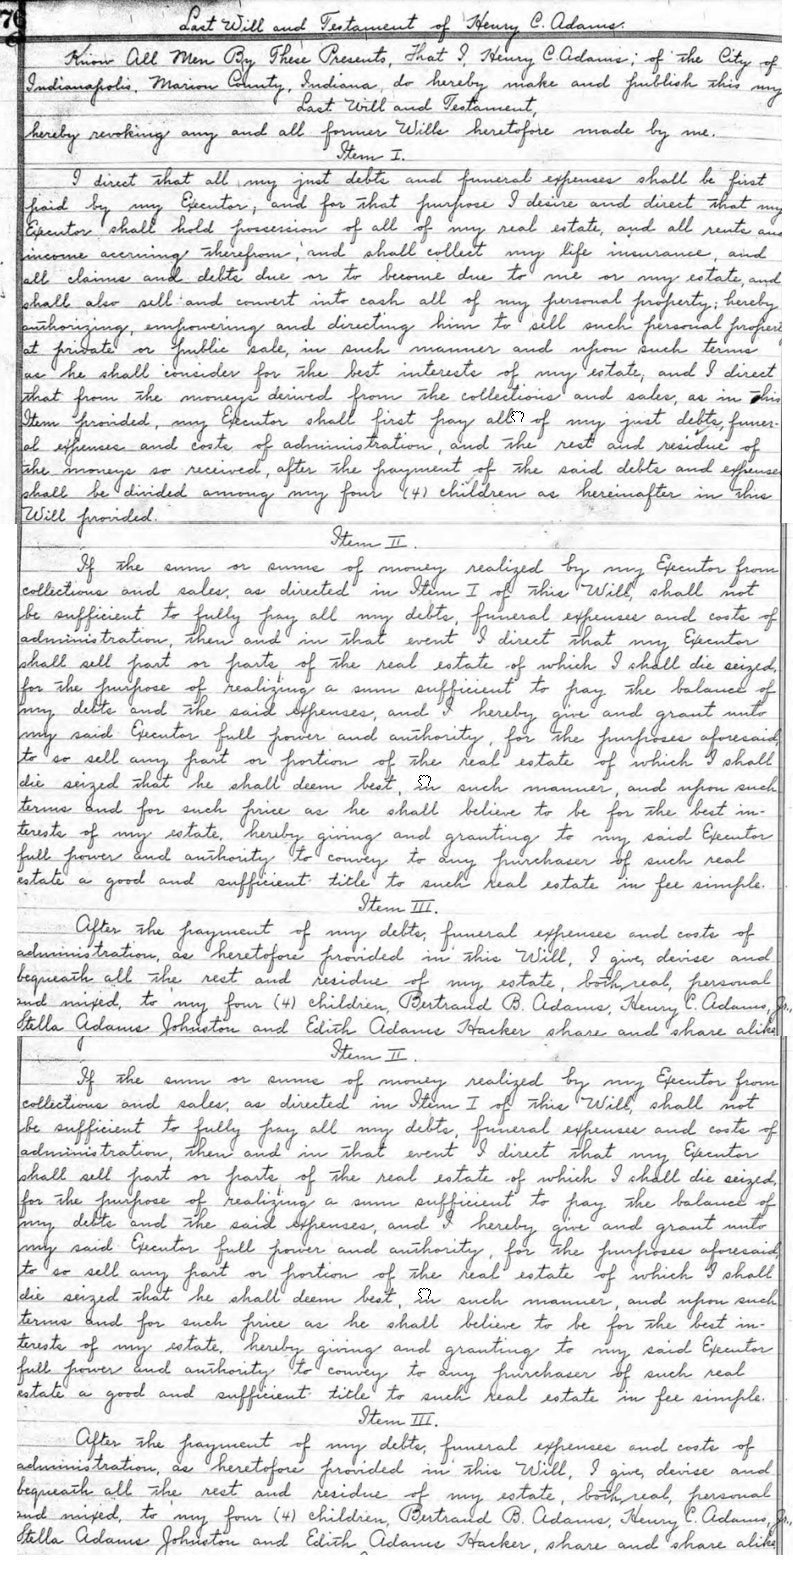 76
Last Will and Testament of Henry C. Adams.
Know All Men By These Presents, That I, Henry C. Adams; of the City of
Indianapolis, Marion County, Indiana, do hereby make and publish this my
Last Will and Testament,
hereby revoking any and all former Wills heretofore made by me.
Item I.
I direct that all my just debts and funeral expenses shall be first
paid by my Executor; and for that purpose I desire and direct that my
Executor shall hold possession of all of my real estate, and all rents and
income accruing therefrom, and shall collect my life insurance, and
all claims and debts due or to become due to me or my estate, and
shall also sell and convert into cash all of my personal property; hereby
authorizing, empowering and directing him to sell such personal propert
at private or public sale, in such manner and upon such terms
as he shall consider for the best interests of my estate; and I direct
that from the moneys derived from the collections and sales, as in this
Item provided, my Executor shall first pay all of my just debts, funer-
al expenses and costs of administration, and the rest and residue of
the moneys so received, after the payment of the said debts and expenses
shall be divided among my four (4) children as hereinafter in this
Will provided.
Item II.
If the sum or sums of money realized by my Executor from
collections and sales, as directed in Item I of this Will, shall not
be sufficient to fully pay all my debts, funeral expenses and costs of
administration, then and in that event I direct that my Executor
shall sell part or parts of the real estate of which I shall die seized,
for the purpose of realizing a sum sufficient to pay the balance of
my debts and the said expenses, and I hereby give and grant unto
my said Executor full power and authority, for the purposes aforesaid,
to so sell any part or portion of the real estate of which I shall
die seized that he shall deem best, in such manner, and upon such
terms and for such price as he shall believe to be for the best in-
terests of my estate, hereby giving and granting to my said Executor
full power and authority to convey to any purchaser of such real
estate a good and sufficient title to such real estate in fee simple.
Item III.
After the payment of my debts, funeral expenses and costs of
administration, as heretofore provided in this Will, I give, devise and
bequeath all the rest and residue of my estate, both real, personal
and mixed, to my four (4) children, Bertrand B. Adams, Henry C. Adams, Jr.,
Stella Adams Johnston and Edith Adams Hacker share and share alike
Item II.
If the sum or sums of money realized by my Executor from
collections and sales, as directed in Item I of this Will, shall not
be sufficient to fully pay all my debts, funeral expenses and costs of
administration, then and in that event I direct that my Executor
shall sell part or parts of the real estate of which I shall die seized,
for the purpose of realizing a sum sufficient to pay the balance of
my debts and the said expenses, and I hereby give and grant unto
my said Executor full power and authority, for the purposes aforesaid,
to so sell any part or portion of the real estate of which I shall
die seized that he shall deem best, in such manner, and upon such
terms and for such price as he shall believe to be for the best in-
terests of my estate, hereby giving and granting to my said Executor
full power and authority to convey to any purchaser of such real
estate a good and sufficient title to such real estate in fee simple.
Item III.
After the payment of my debts, funeral expenses and costs of
administration, as heretofore provided in this Will, I give, devise and
bequeath all the rest and residue of my estate, both real, personal
and mixed, to my four (4) children, Bertrand B. Adams, Henry C. Adams, Jr.,
Stella Adams Johnston and Edith Adams Hacker, share and share alike